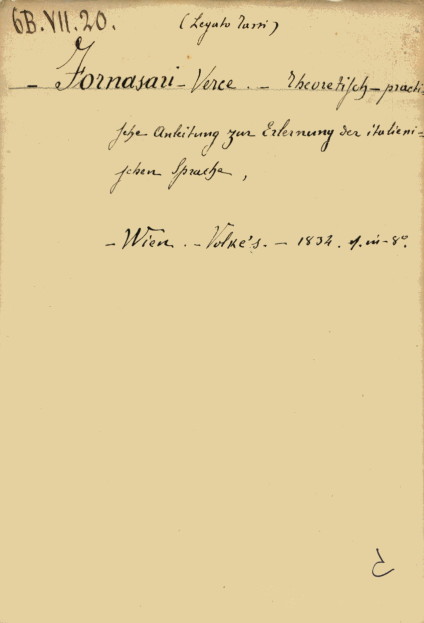 6B.VII.20.
(Legato Tarri)
– Fornasari – Verce. – Theoretisch – practi=
sche Anleitung zur Erlernung der italieni=
schen Sprache,
– Wien. – Volke's. – 1832. in-8°.